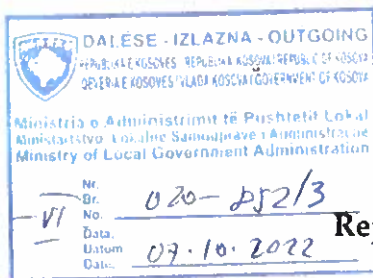 DALËSE - IZLAZNA - OUTGOING
REPUBLIKA E KOSOVËS REPUBLIKA KOSOVA REPUBLIC OF KOSOVA
QEVERIA E KOSOVËS VLADA KOSOVA GOVERNMENT OF KOSOVA
Ministria e Administrimit të Pushtetit Lokal
Ministarstvo Lokalne Samouprave i Administracije
Ministry of Local Government Administration
Nr.
Br.
No.
VI
020-852/3
Data.
Datum
Date.
07.10.2022
Rep